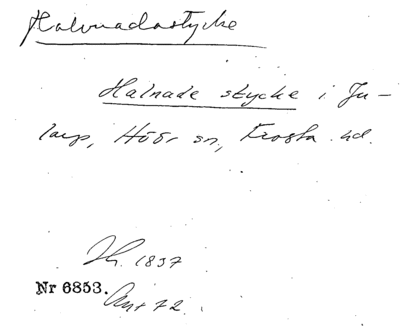 Halvnadastycke
Halnade stycke i Ju-
larp, Höör sn, Frosta hd.
1837
Nr 6853.
72.